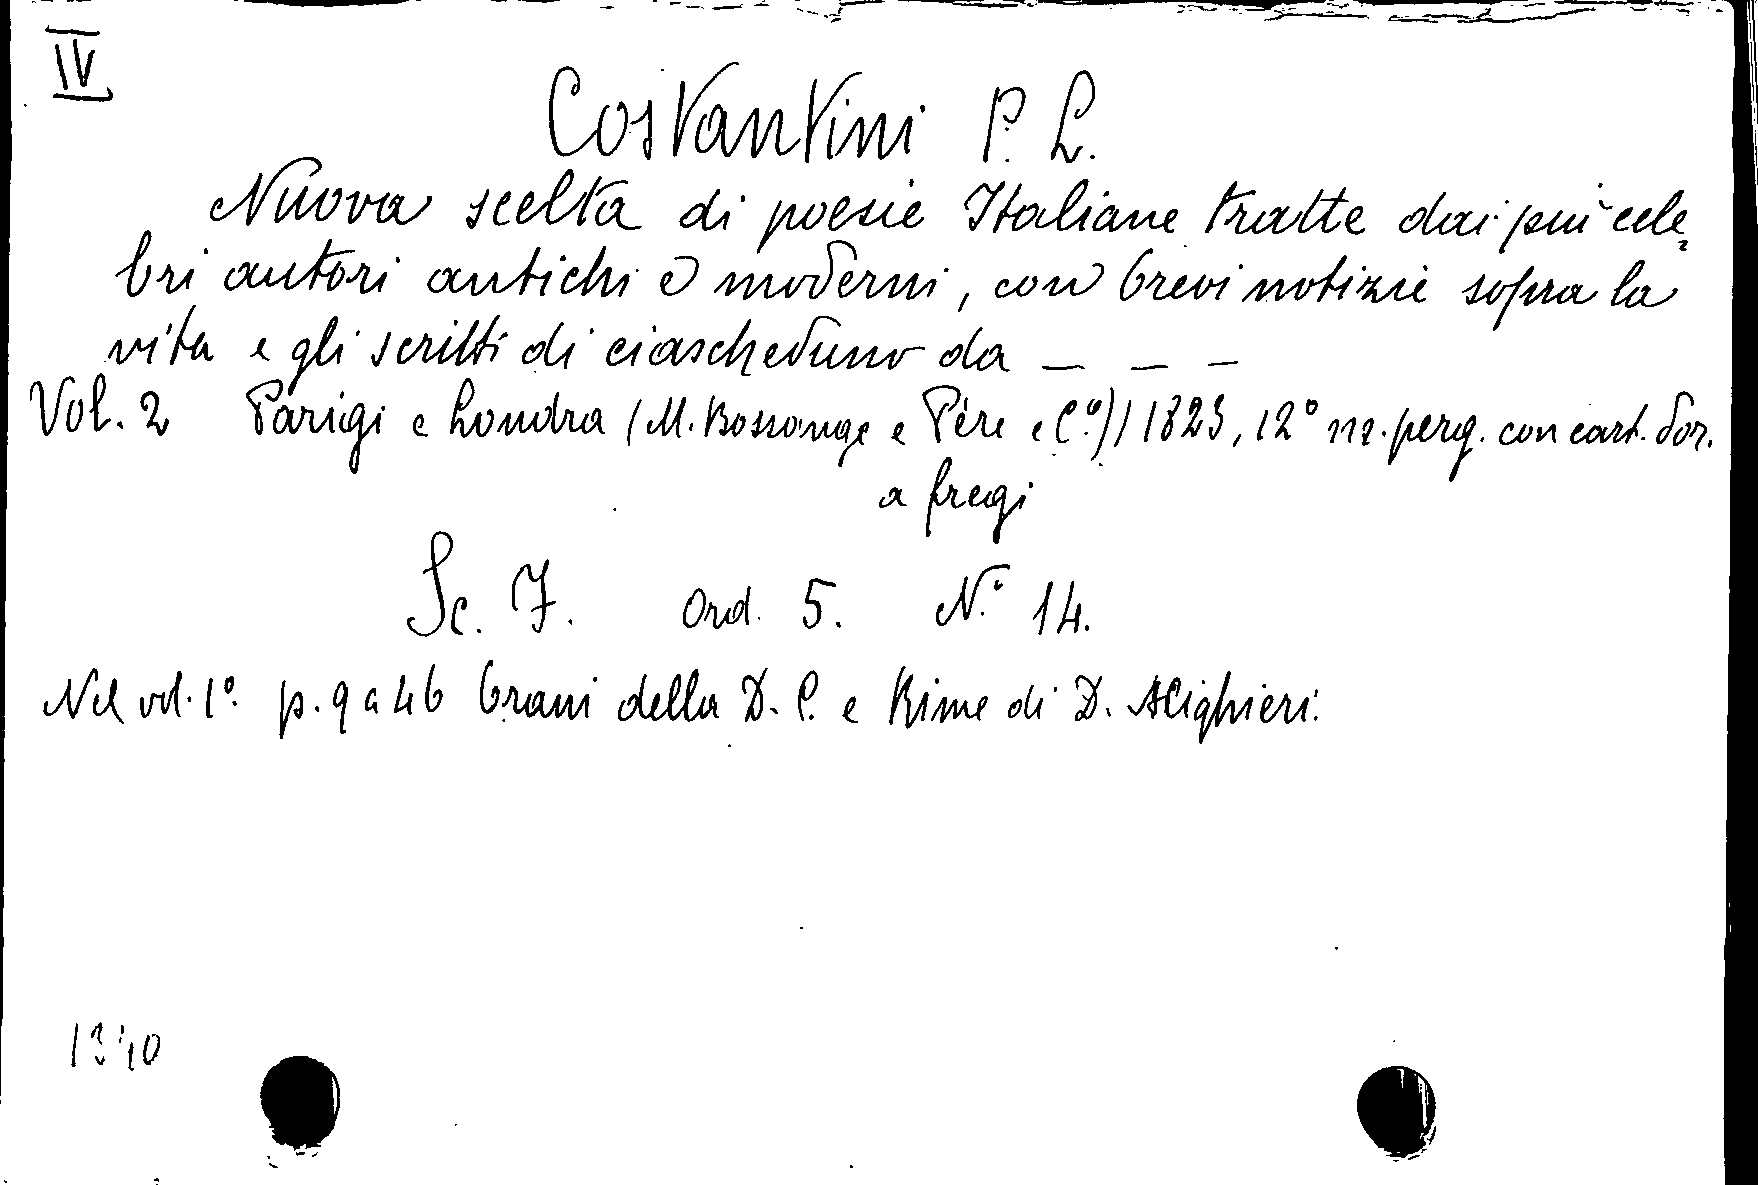 IV
Costantini P. L.
Nuova scelta di poesie Italiane tratte dai più cele
bri autori antichi e moderni, con brevi notizie sopra la
vita e gli scritti di ciascheduno da _ _ _
Vol. 2 Parigi e Londra (M. Bossange e Père e C.º)) 1823, 12º m. perg. con cart. dor.
a fregi
Sc. 7. Ord. 5. N.º 14.
Nel vol. 1º. p. 9 a 46 brani della D. C. e Rime di D. Alighieri.